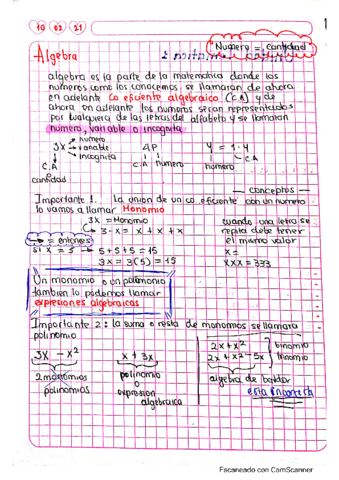 10 02 21
1
Numero = cantidad
Algebra
algebra es la parte de la matematica donde los
numeros como los conocemos, se llamaran de ahora
en adelante Co eficiente algebraico (C.A) y de
ahora en adelante los numeros seran representados
por cualquiera de las letras del alfabeto y se llamaran
numero, variable o incognita
3x → numero
→ variable
→ incognita
C.A
cantidad
4P
C.A numero
y = 1·y
numero C.A
— conceptos —
Importante 1. La union de un co eficiente con un numero
lo vamos a llamar Monomio
3x = Monomio
3·x = x + x + x
⇒ = entonces
si x = 5 → 5+5+5 = 15
3x = 3(5) = 15
cuando una letra se
repita debe tener
el mismo valor
x =
xxx = 333
Un monomio o un polinomio
tambien lo podemos llamar
expresiones algebraicas
Importante 2: la suma o resta de monomios se llamara
polinomio
3x - x²
2 monomios
polinomios
x + 3x
polinomio
o
expresion
algebraica
2x+x² binomio
2x + x² - 5x trinomio
algebra de baldor
esta incorrecto
Escaneado con CamScanner